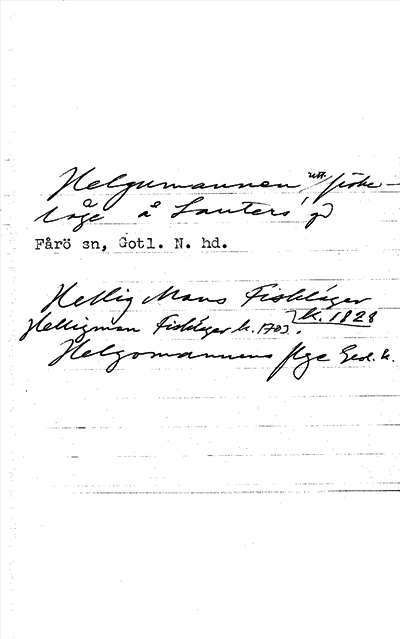 Helgumannen, utt. fiske-
läge å Lauters, gd
Fårö sn, Gotl. N. hd.
Hellig Mans Fiskläger
k. 1828
Helligman Fiskläger k. 1703.
Helgomannens flge Geol. k.